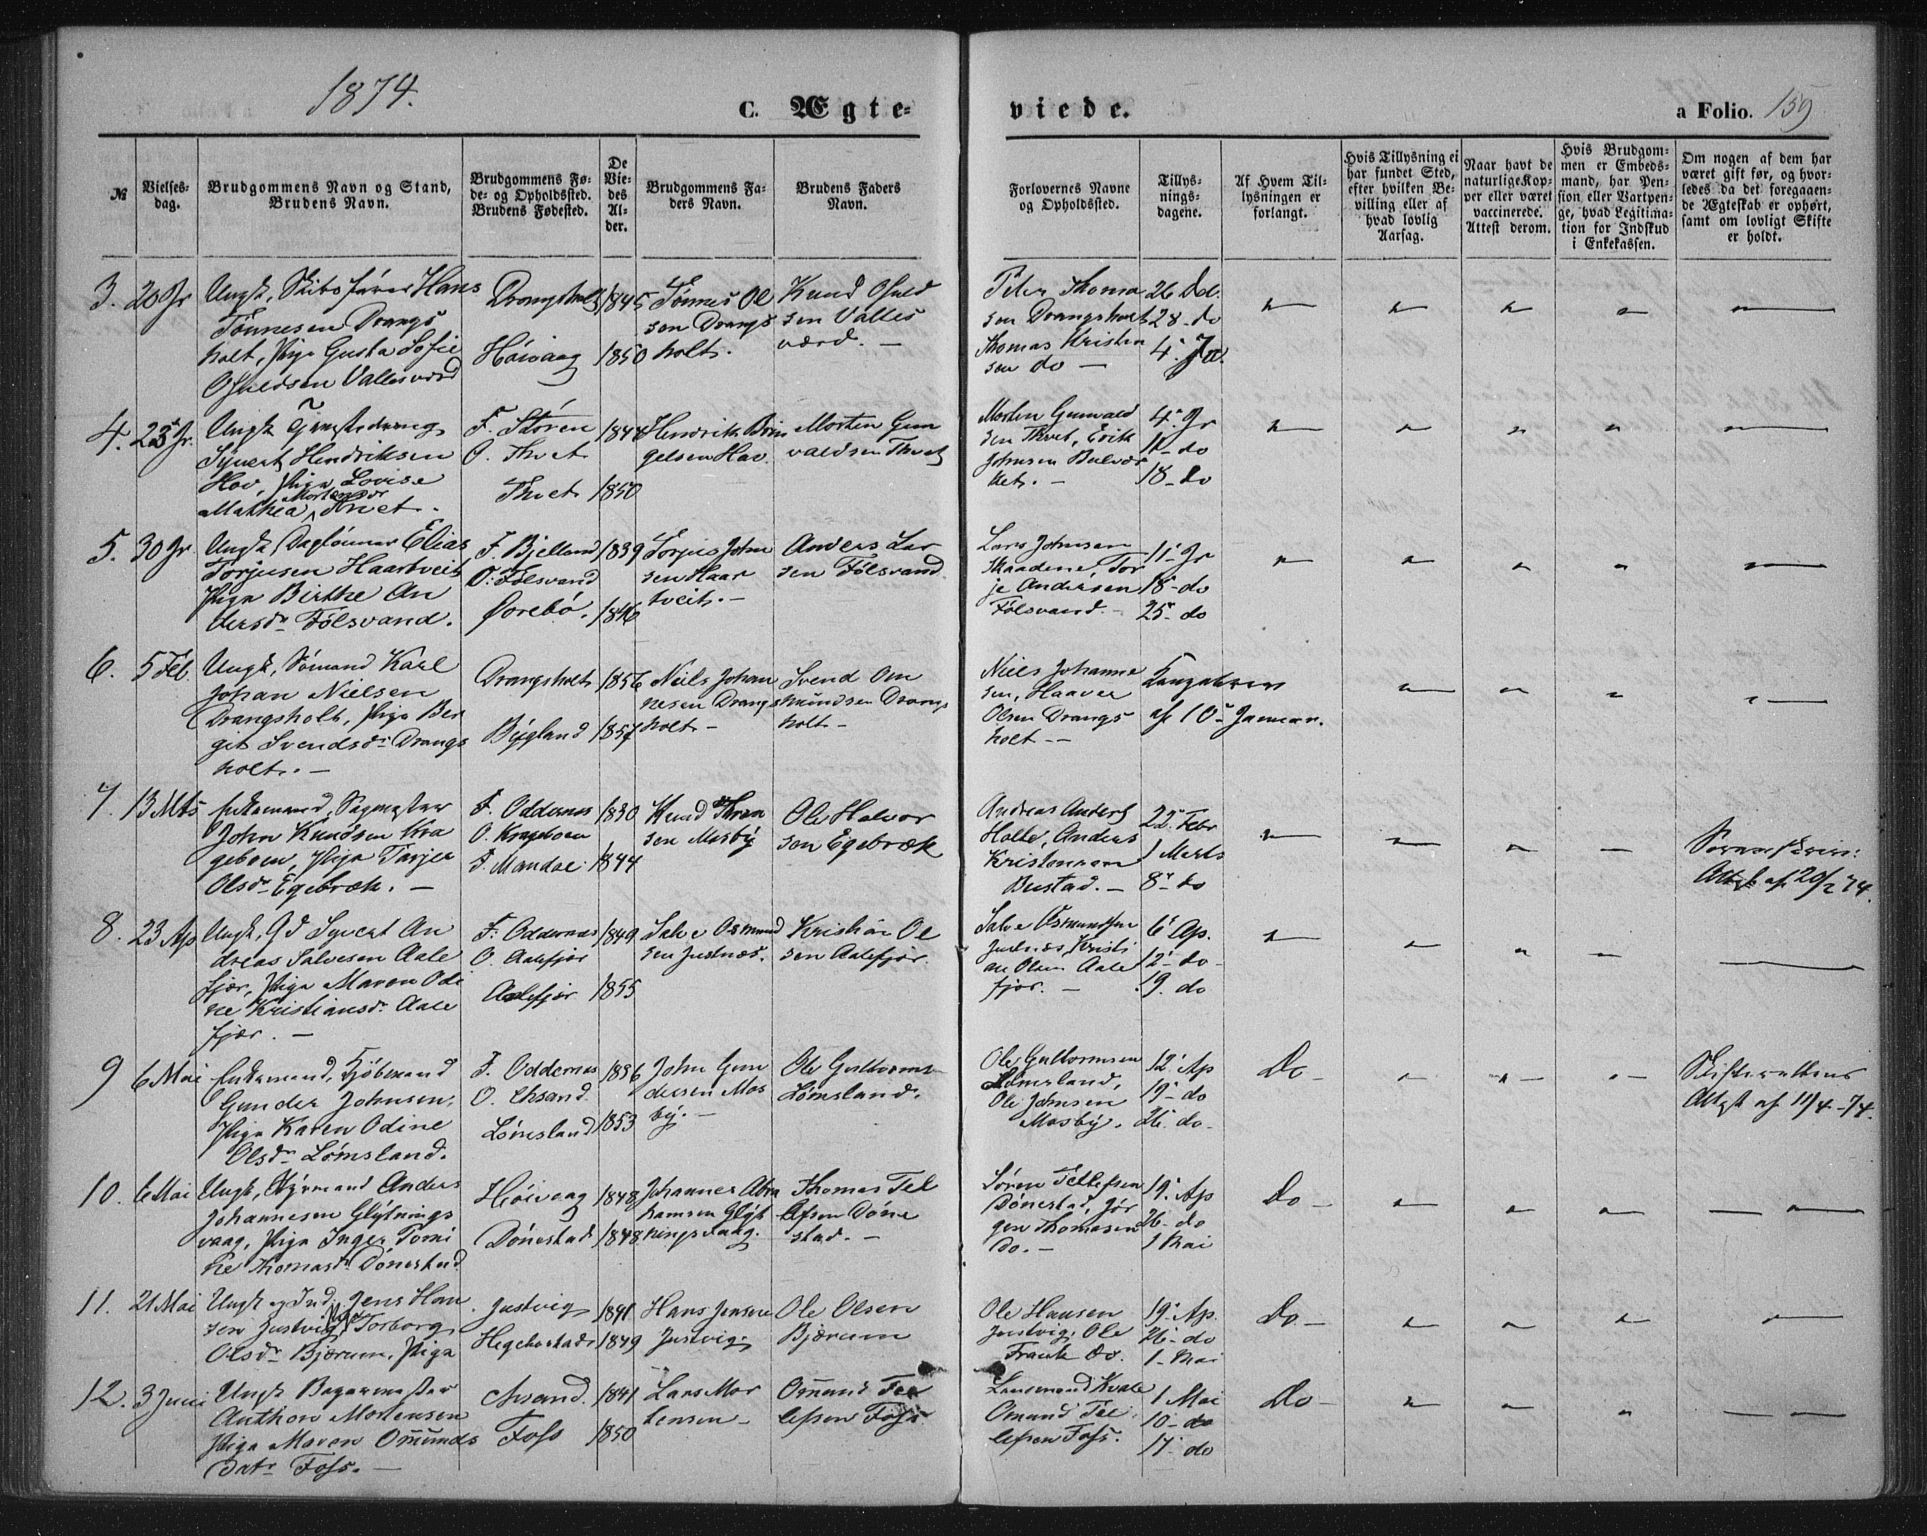 1874.
C. Ægte-
viede.
a Folio. 159
№
Vielses-
dag.
Brudgommens Navn og Stand,
Brudens Navn.
Brudgommens Fø-
de- og Opholdssted.
Brudens Fødested.
De
Vie-
des
Al-
der.
Brudgommens Fa-
ders Navn.
Brudens Faders
Navn.
Forlovernes Navne
og Opholdssted.
Tillys-
nings-
dagene.
Af Hvem Til-
lysningen er
forlangt.
Hvis Tillysning ei
har fundet Sted,
efter hvilken Be-
villing eller af
hvad lovlig
Aarsag.
Naar havt de
naturlige Kop-
per eller været
vaccinerede.
Attest derom.
Hvis Brudgom-
men er Embeds-
mand, har Pen-
sion eller Vartpen-
ge, hvad Legitima-
tion for Indskud
i Enkekassen.
Om nogen af dem har
været gift før, og hvor-
ledes da det foregaaen-
de Ægteskab er ophørt,
samt om lovligt Skifte
er holdt.
3. 20 Jr
Ungk, Skibsfører Hans
Tønnesen Drangs
holt, Pige Gusta Sofie
Osuldsen Vallesværd
Drangsholt 1845
Høivaag 1850
Tønnes Ol
sen Drangs
holt.
Knud Osuld
sen Valles
værd. —
Peter Thoma
sen Drangsholt
Thomas Kristen
sen do —
26 Dec.
28 - do
4 Ja.
4. 23 Jr.
Ungk Tjenestedreng
Syvert Hendriksen
Hov, Pige Lovise
Mortensdr
Mathea Thvet.
F. Støren 1844
O. Thvet
Thvet 1850
Hendrik Brin
gelsen Hov.
Morten Gun
valdsen Thvet
Morten Gunvald
sen Thvet, Erik
Johnsen Bulvær
ket. -
4 Jr
11 - do
18 - do
5. 30 Jr
Ungk, Daglønner Elias
Torjusen Haartveit
Pige Birthe An
dersdr Følsvand.
F. Bjelland 1839
O. Følsvand
Øvrebø. 1846
Torjus John
sen Haar
tveit. -
Anders Lar
sen Følsvand
Lars Johnsen
Skaadene, Tor
je Andersen
Følsvand. -
11 - Jr
18 - do
25 do
6. 5 Feb.
Ungk, Sømand Karl
Johan Nielsen
Drangsholt, Pige Ber
git Svendsdr Drangs
holt. —
Drangsholt 1856
Bygland 1857
Neils Johan
nesen Drangs
holt -
Svend Om
mundsen Drangs
holt -
Niels Johanne
sen, Haaver
Olsen Drangs
holt --
Kongebrev
af 10 Januar.
7. 13 Mts
Enkemand, Sagmester
John Knudsen Kra
geboen, Pige Tarjer
Olsdr Egebræk. —
F. Oddernes 1830
O. Krageboen
F. Mandal 1844
Knud Thron
sen Mosby
Ole Halvor
sen Egebræk
Andreas Anders
Holle, Anders
Kristensen
Bustad. -
22 Febr
1 Marts
8 do
Sorenskriver
Attest af 20/2 74.
8. 23 Ap
Ungk, Gd Syvert An
dreas Salvesen Aale
fjær, Pige Maren Odi
ne Kristiansdr Aale
fjær. —
F. Oddernes 1849
O. Aalefjær
Aalefjær 1855
Salve Osmund
sen Justnæs.
Kristian Ol
sen Aalefjær
Salve Osmundsen
Justnæs, Kristi
an Olsen Aale
fjær. -
6 Ap.
12 - do
19. do
9 6 Mai
Enkemand, Kjøbmand
Gunder Johnsen,
Pige Karen Odine
Olsdr Lømsland.
F. Oddernes 1836
O. Chsand.
Lømsland 1853
John Gun
dersen Mos
by. —
Ole Guttorms
Lømsland.
Ole Guttormsen
Lømsland,
Ole Johnsen
Mosby.
12 Ap
19 - do
26. do
Do -
Skifterettens
Attest af 11/4 - 74.
10. 6 Mai
Ungk, Styrmand Anders
Johannesen Glytnings
vaag, Pige Inger Tomi
ne Thomasdr Dønestad
Høivaag 1848
Dønestad 1848
Johannes Abra
hamsen Glyt
ningsvaag.
Thomas Tel
lefsen Døne
stad. -
Søren Tellefsen
Dønestad, Jør
gen Thomasen
Do. -
19 Ap
26 - do
1 Mai
Do -
11. 21 Mai
Ungk og Ind. Jens Han
sen Justvig, Torborg
Olsdr Bjørum, Pige
Justvig 1841
Hegebostad 1849
Hans Jensen
Justvig
Ole Olsen
Bjærum
Ole Hansen
Justvig, Ole
Frank do.
19 Ap.
26 - do
1 - Mai
Do -
12. 3 Juni
Ungk Bagermester
Anthon Mortensen
Pige Maren Omunds
Datr Foss. —
Chrsand. 1841
Foss 1850
Lars Mor
tensen -
Omund Tel
lefsen Foss
Lensmand Kvale
Omund Tel
lefsen Foss.
1 Mai
10 - do
17 - do
Do -